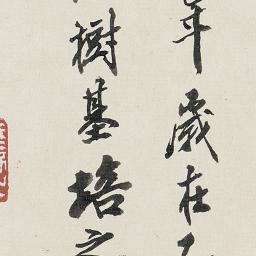 年歲在
樹基培之